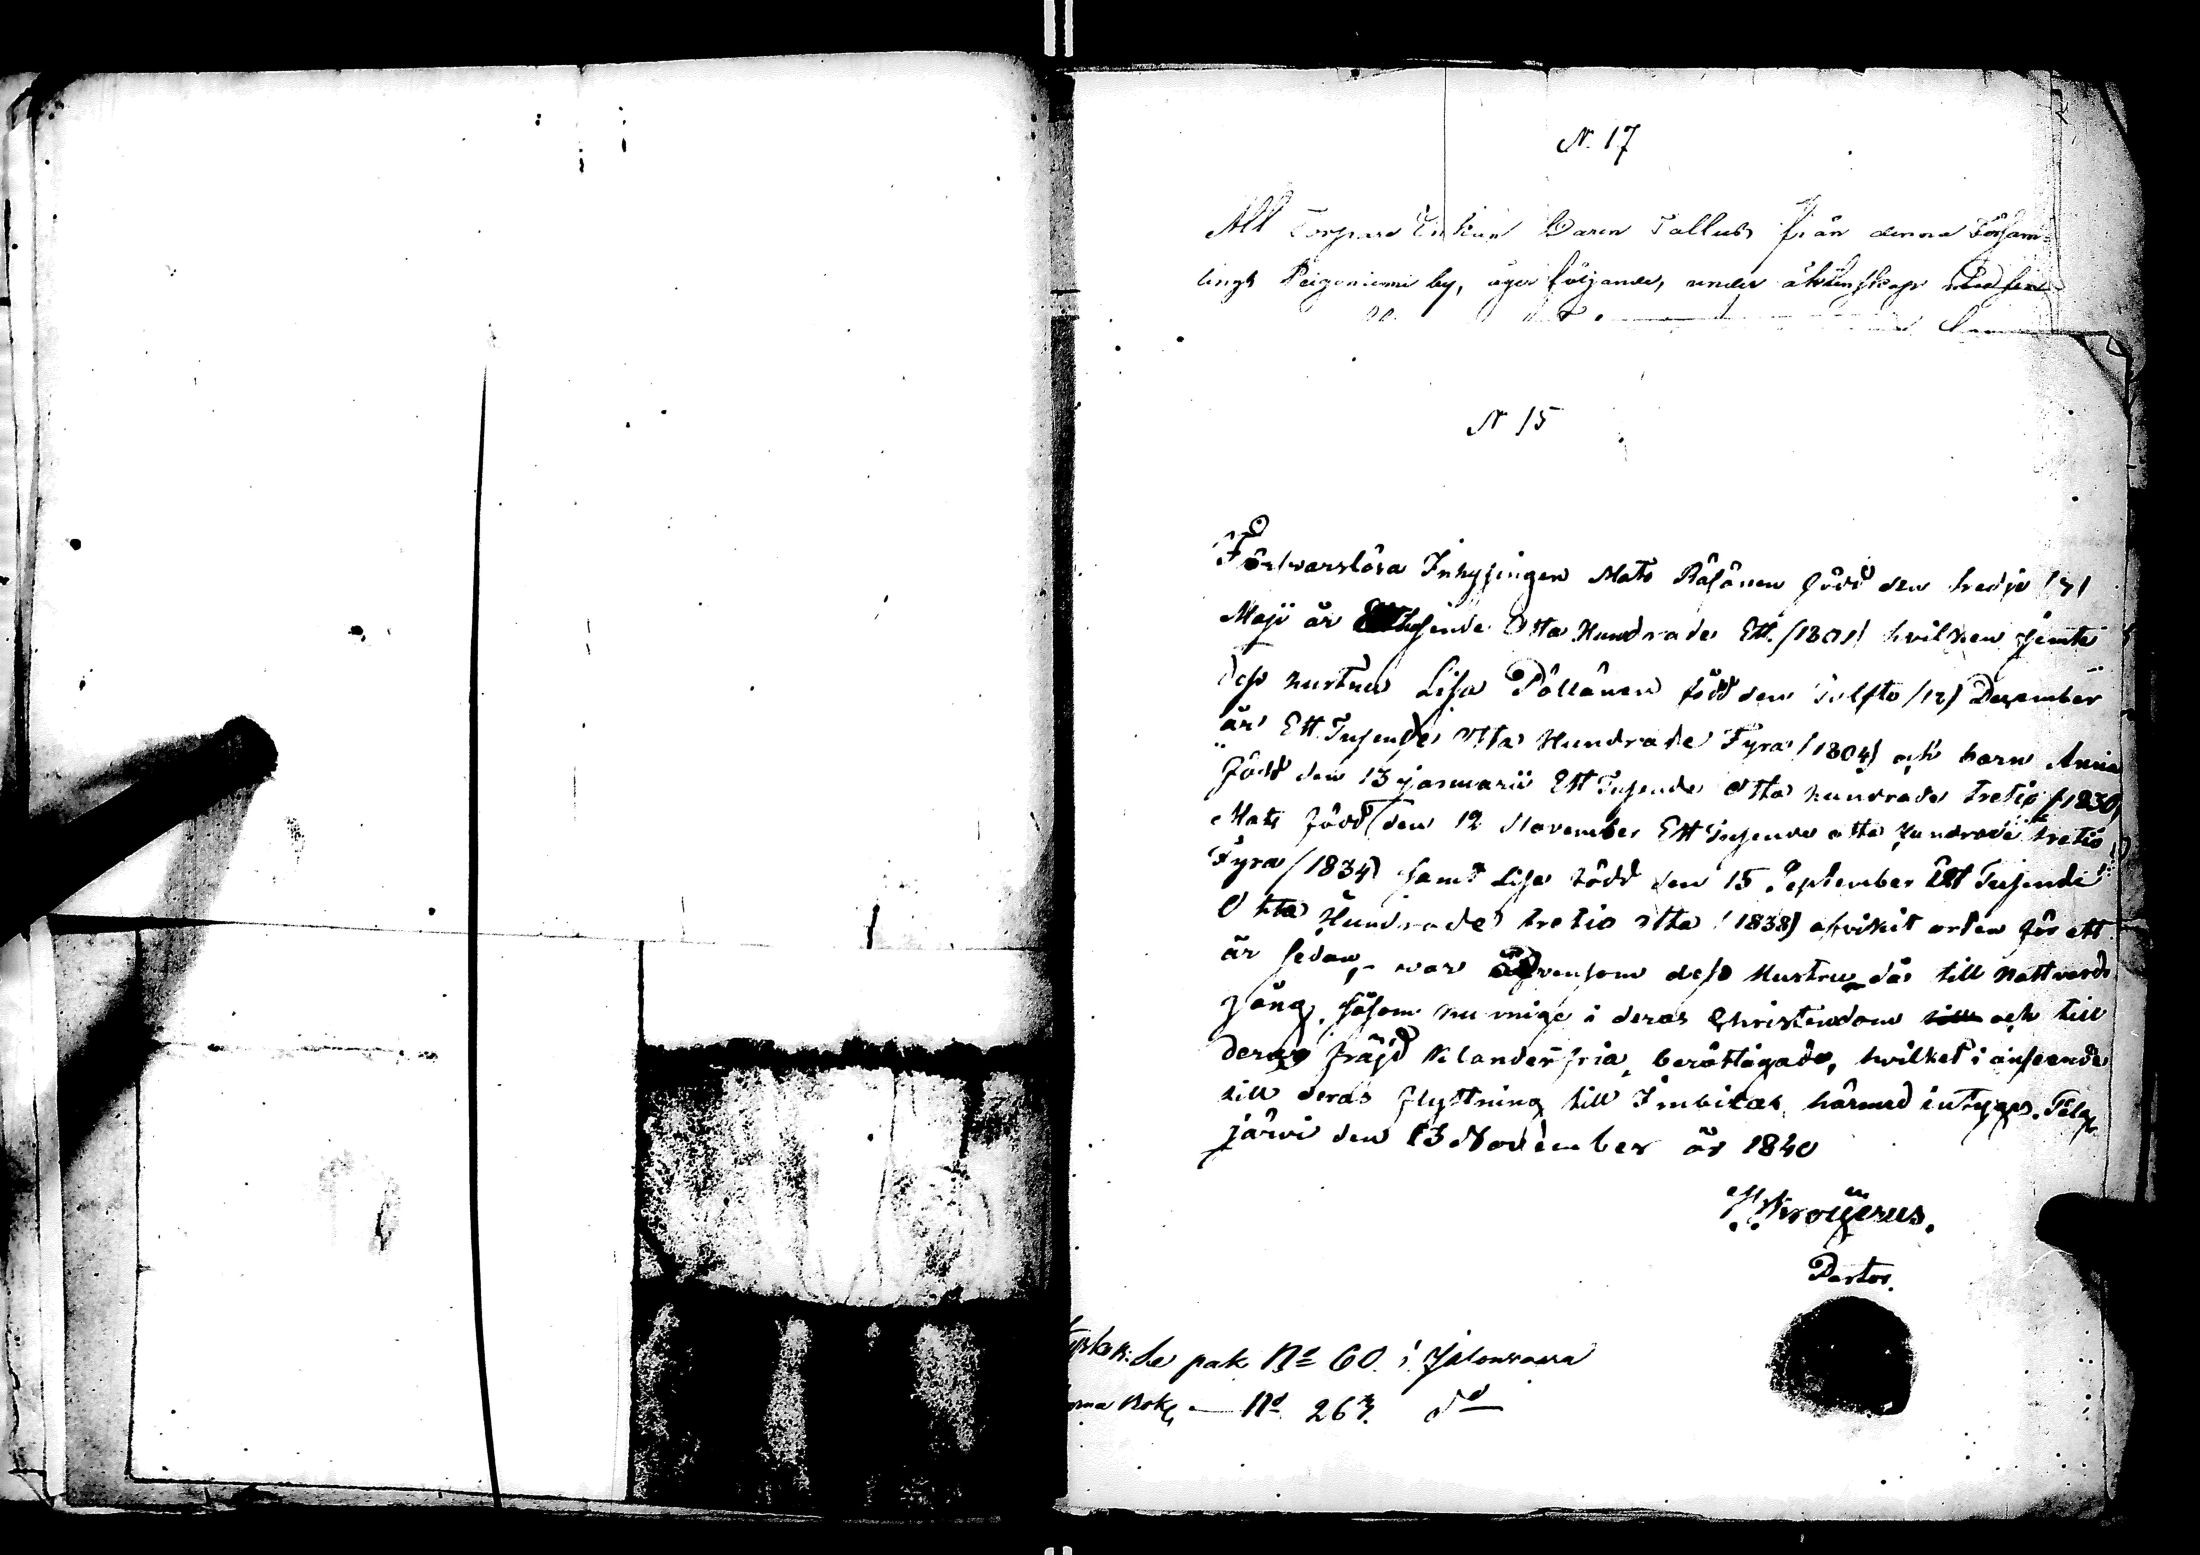 N. 17
Att Torpare Enkan Caren Tallus från denna Försam-
lings by, äger följande, under
N 15
Förswarslösa Inhysingen Mats Räsänen född den tredje /3/
Maji år Ettusende Otta Hundrade Ett /1801/ hvilken jemte
dess hustru Lisa Pöllänen född den Tolfte /12/ Dezember
år Ett Tusende Otta Hundrade Fyra /1804/ och barn Anna
född den 13 januarii Ett Tusende Otta hundrade tretio /1830/
Mats född den 12 November Ett Tusende otta hundrade tretio
Fyra /1834/ samt Lisa född den 15 September Ett Tusende
Otta Hundrade tretio otta /1838/ afvikit orten för ett
år sedan, war äfvensom dess Hustru då till Nattvards
gång, såsom kunnige i deras Christendom och till
deras fräjd klanderfria, berättigade, hwilket i anseende
till deras flyttning till Imbilax härmed intygas. Pelg
järwi den 13 November år 1840
Kroijerus.
Pastor.
Se pak No 60. i Jalonvaara
No 263. do